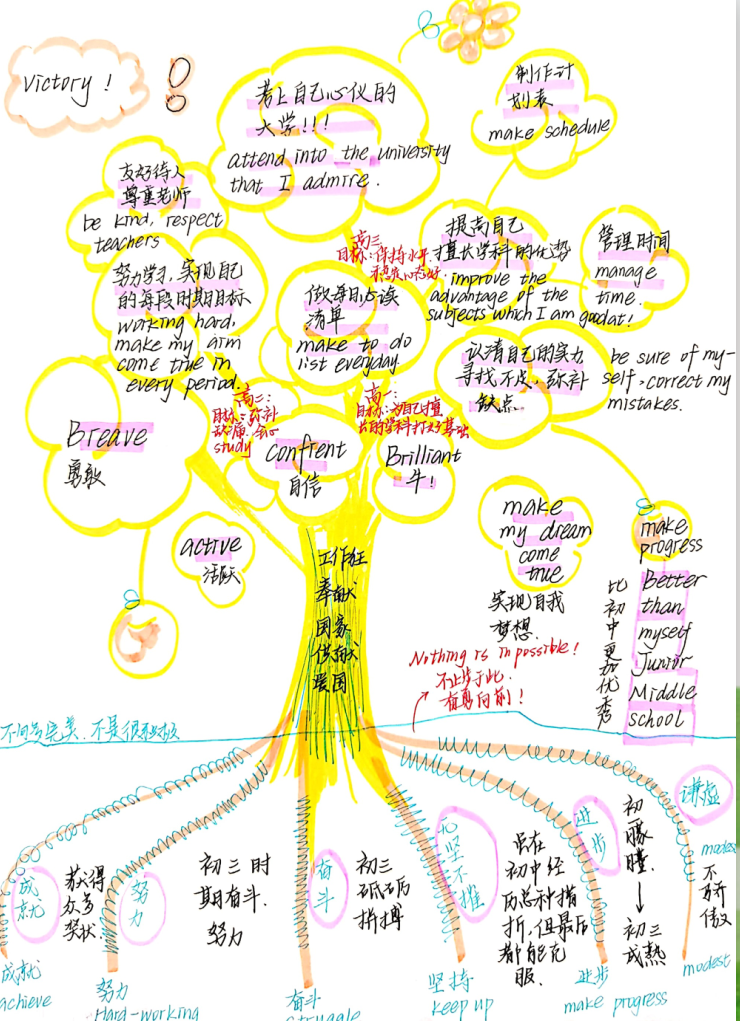 victory!
考上自己心仪的
大学!!!
attend into the university
that I admire.
制作计
划表
make schedule
友好待人
尊重老师
be kind, respect
teachers
努力学习,实现自己
的每段时期目标
working hard,
make my arm
come true in
every period.
高三
目标:保持水平,
稳定心态好.
提高自己
擅长学科的优势
improve the
advantage of the
subjects which I am good at!
管理时间
manage
time.
做每日必读
清单
make to do
list everyday.
认清自己的实力
寻找不足,弥补
缺点
be sure of my-
self, correct my
mistakes.
高二:
目标:弥补
study
高一:
目标:为自己擅
长的学科打好基础
Breave
勇敢
confrent
自信
Brilliant
牛!
active
活跃
make
my dream
come
true
实现自我
梦想.
make
progress
比初中更加优秀
Better
than
myself
Junior
Middle
school
工作狂
奉献
国家
贡献
爱国
Nothing is inpossible!
不止步于此.
奋勇向前!
成就
获得
众多
奖状.
努力
初三时
期奋斗.
努力
奋斗
初三
砥砺
拼搏
无坚不摧
虽在
初中经
历总种挫
折,但最后
都能克
服.
进步
初一
朦胧
初三
成熟
谦虚
modest
不骄傲
成就
achieve
努力
Hard-working
奋斗
struggle
坚持
keep up
进步
make progress
modest